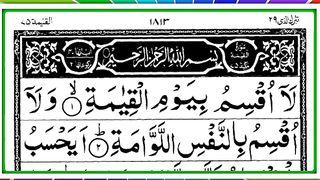 تبٰرك الذى ٢٩ ١٨١٣ القيٰمة ٧٥
بِسْمِ اللهِ الرَّحْمٰنِ الرَّحِيْمِ
لَآ اُقْسِمُ بِيَوْمِ الْقِيٰمَةِ ١ وَلَآ
اُقْسِمُ بِالنَّفْسِ اللَّوَّامَةِ ٢ اَيَحْسَبُ